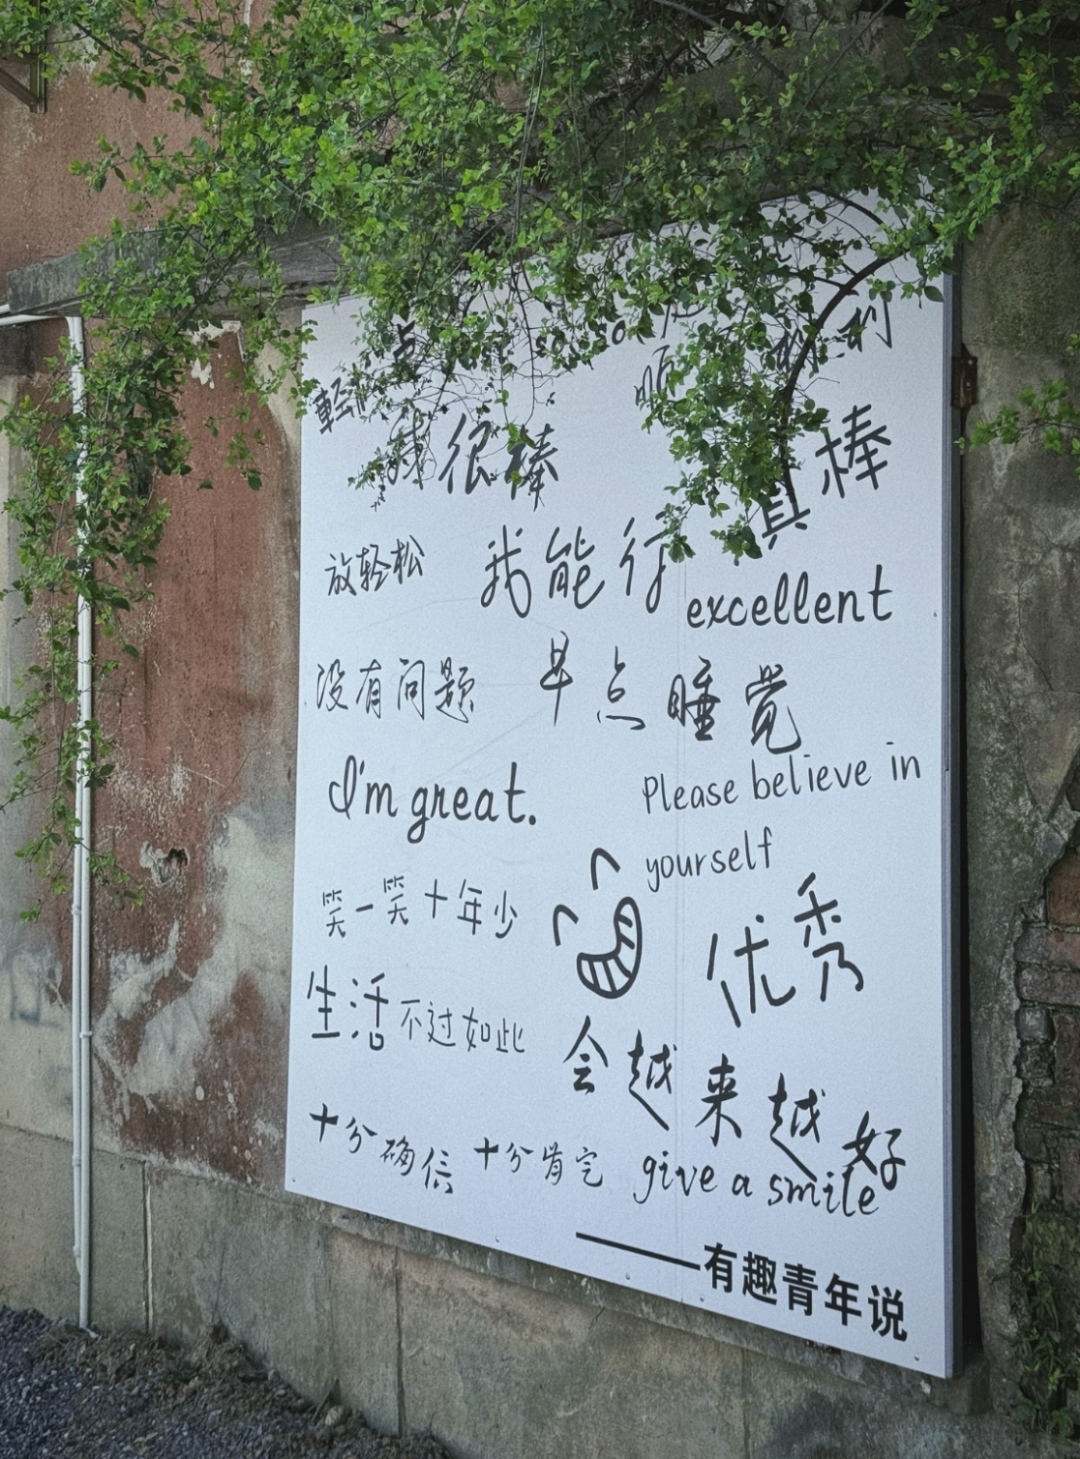 我很棒
真棒
放轻松
我能行
excellent
没有问题
早点睡觉
I'm great.
Please believe in
yourself
笑一笑十年少
优秀
生活不过如此
会越来越好
十分确信 十分肯定
give a smile
——有趣青年说